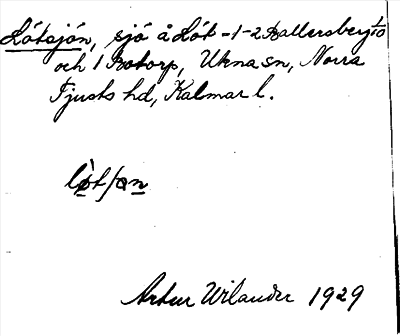 Lötsjön, sjö å Löt -1-2 Ballersberg 1/10
och 1 Botorp, Ukna sn, Norra
Tjusts hd, Kalmar l.
Artur Wilander 1929